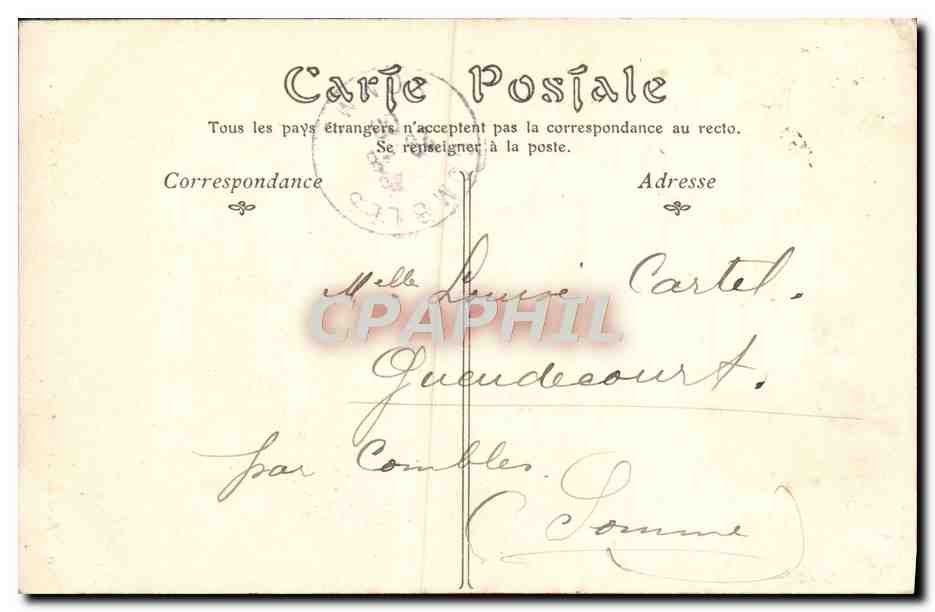 Carte Postale
Tous les pays étrangers n'acceptent pas la correspondance au recto.
Se renseigner à la poste.
Correspondance
Adresse
COMBLES
Melle Louise Cartel.
CPAPHIL
Gueudecourt.
par Combles.
(Somme)